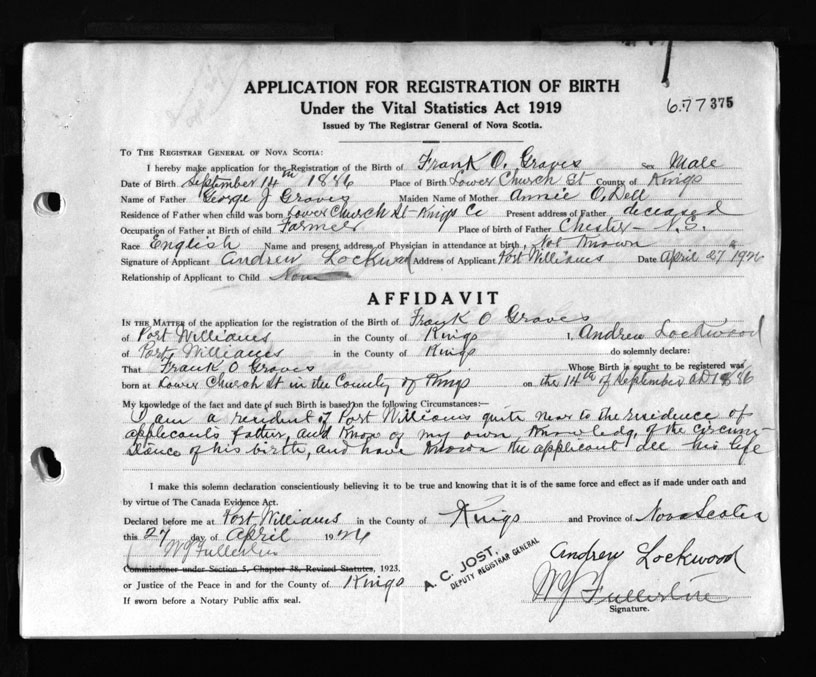 APPLICATION FOR REGISTRATION OF BIRTH
Under the Vital Statistics Act 1919
Issued by The Registrar General of Nova Scotia.
677 375
TO THE REGISTRAR GENERAL OF NOVA SCOTIA:
I hereby make application for the Registration of the Birth of Frank O. Graves Sex Male
Date of Birth September 14th 1886 Place of Birth Lower Church St County of Kings
Name of Father George J Graves Maiden Name of Mother Annie O,Dell
Residence of Father when child was born Lower Church St - Kings Co Present address of Father deceased
Occupation of Father at Birth of child Farmer Place of birth of Father Chester - N.S.
Race English Name and present address of Physician in attendance at birth, Not Known
Signature of Applicant Andrew Lockwood Address of Applicant Port Williams Date April 27 1926
Relationship of Applicant to Child None
AFFIDAVIT
IN THE MATTER of the application for the registration of the Birth of Frank O Graves
of Port Williams in the County of Kings I, Andrew Lockwood
of Port Williams in the County of Kings do solemnly declare:
That Frank O Graves Whose Birth is sought to be registered was
born at Lower Church St in the County of Kings on the 14th of September AD 1886
My knowledge of the fact and date of such Birth is based on the following Circumstances:—
I am a resident of Port Williams quite near to the residence of
applicants father, and know of my own knowledg, of the circum-
stance of his birth, and have known the applicant all his life
I make this solemn declaration conscientiously believing it to be true and knowing that it is of the same force and effect as if made under oath and
by virtue of The Canada Evidence Act.
Declared before me at Port Williams in the County of Kings and Province of Nova Scotia
this 27 day of April 1926
W J Fullerton
Commissioner under Section 5, Chapter 38, Revised Statutes, 1923.
or Justice of the Peace in and for the County of Kings
If sworn before a Notary Public affix seal.
A. C. JOST,
DEPUTY REGISTRAR GENERAL
Andrew Lockwood
W J Fullerton
Signature.